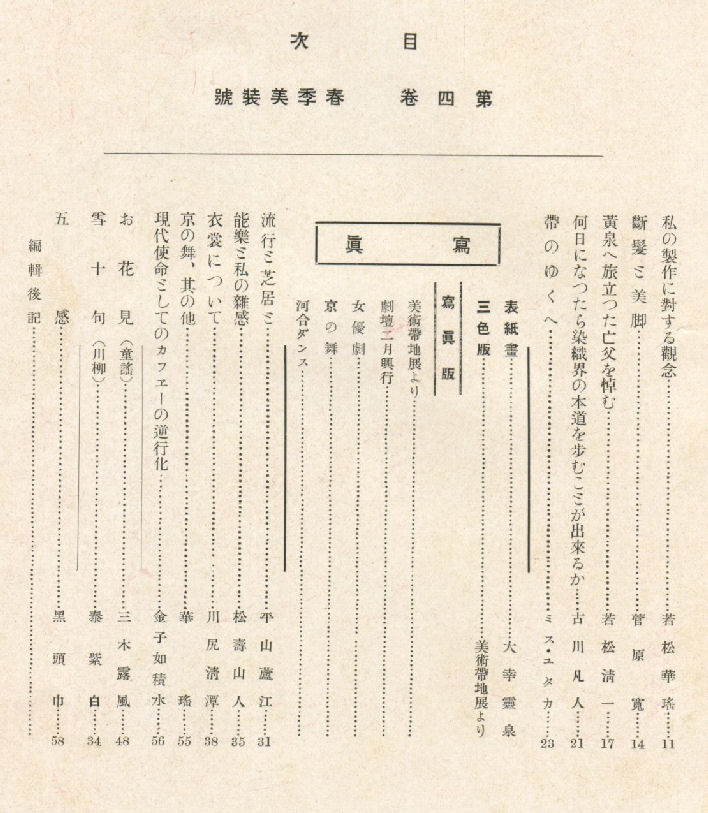 目次
第四卷 春季美装號
私の製作に對する觀念……若松華瑤……11
斷髮と美脚……菅原寬……14
黃泉へ旅立つた亡父を悼む……若松淸一……17
何日になつたら染織界の本道を步むことが出來るか……古川凡人……21
帶のゆくへ……ミス・ユタカ……23
表紙畫……大幸靈泉
三色版……美術帶地展より
寫眞
寫眞版
美術帶地展より……
劇壇二月興行……
女優劇……
京の舞……
河合ダンス……
流行と芝居と……平山蘆江……31
能樂と私の雜感……松壽山人……35
衣裳について……川尻淸潭……38
京の舞、其の他……華瑤……55
現代使命としてのカフエーの逆行化……金子如積水……56
お花見（童謠）……三木露風……48
雪十句（川柳）……泰紫白……34
五感……黑頭巾……58
編輯後記……